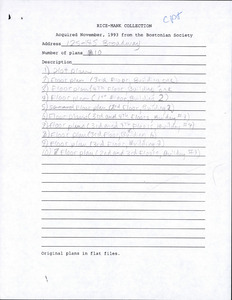 CPF
RICE-MARK COLLECTION
Acquired November, 1993 from the Bostonian Society
Address 125-85 Broadway
Number of plans 10
Description
1) Plot Plan
2) Floor plan (3rd Floor, Building
3) Floor plan (4th Floor, Building
4) Floor plan (1st Floor, Building 2)
5) Floor plan (2nd Floor, Building 2)
6) Floor plan (3rd and 4th Floors, Building
7) Floor plan (3rd and 4th Floors, Building
8) Floor plan (3rd Floor, Building
9) Floor plan (3rd Floor, Building
10) Floor plan (2nd and 3rd Floors, Building
Original plans in flat files.